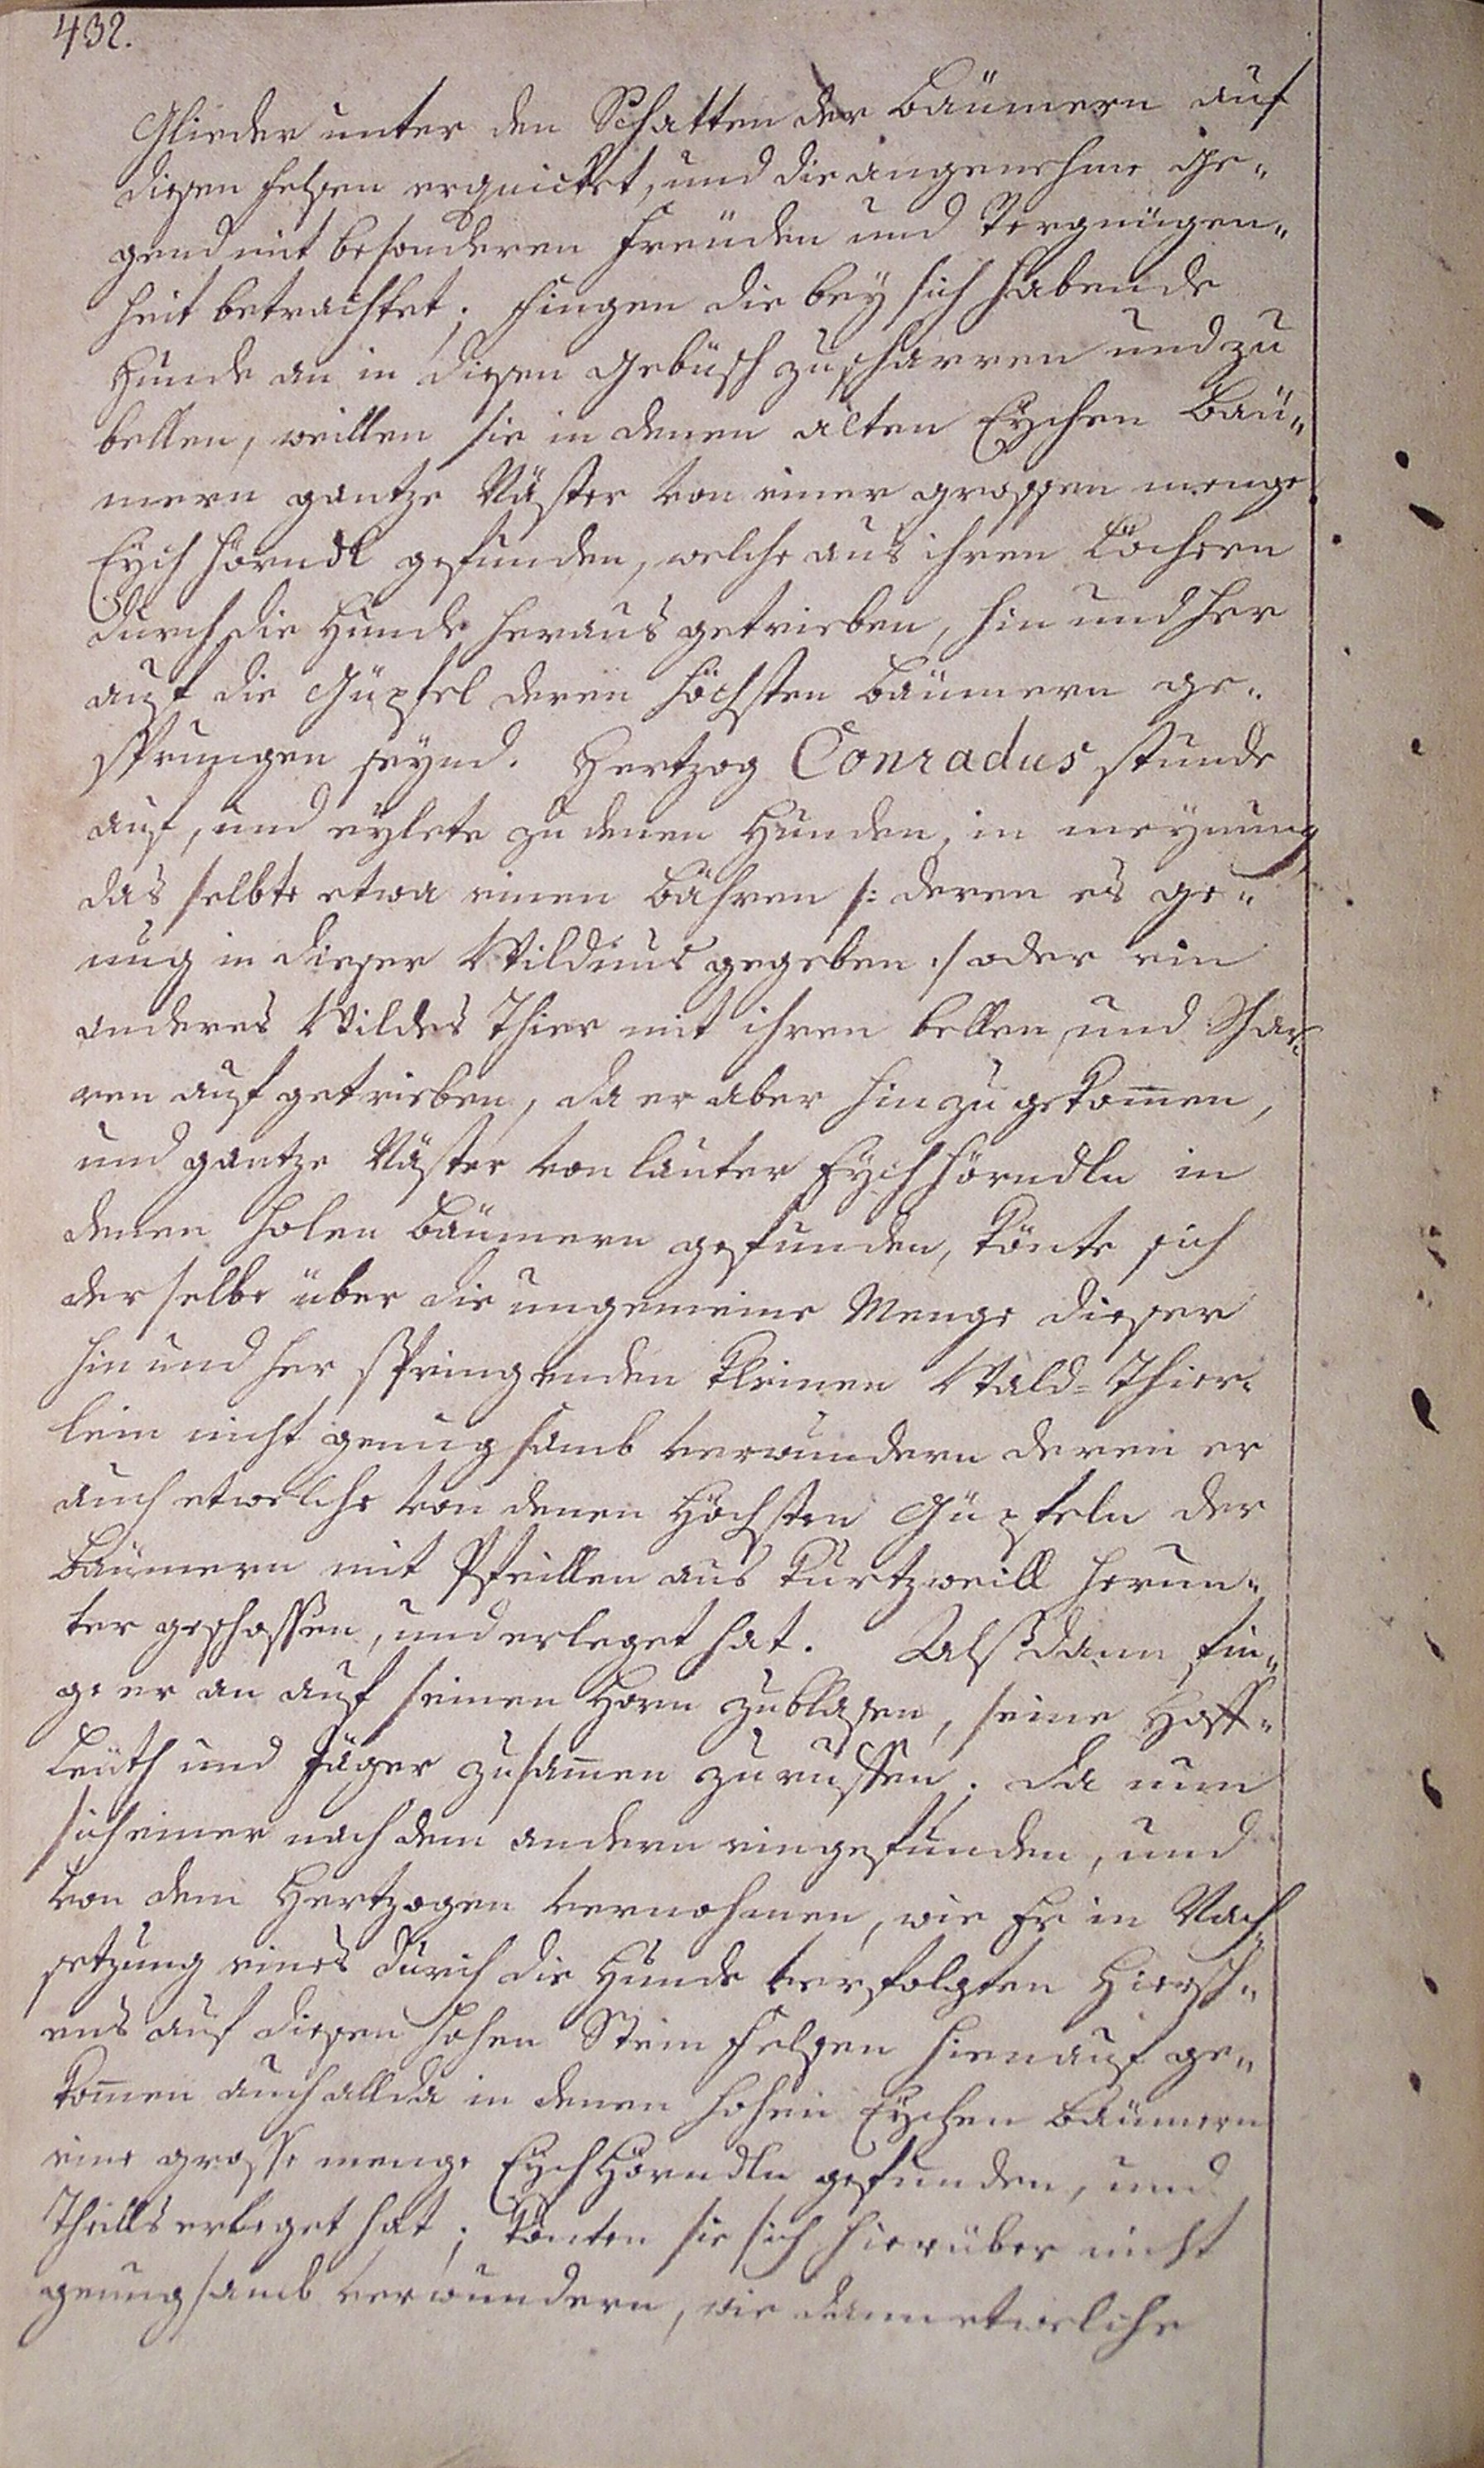 432.
Glieder unter den Schatten der Bäumern auf
diesen felsen erquicket, und die angenehme Ge„
gend mit besonderen Freuden und Vergnügen„
heit betrachtet; fingen die bey sich habende
Hunde an in diesen Gebüsch zu scharren und zu
bellen, weillen sie in denen alten Eychen Bäu„
mern gantze Näster von einer grossen menge
Eych hörndl gefunden, welche aus ihren Löchern
durch die Hunde heraus getrieben, hin und her
auf die Güpfel deren höchsten Bäumern ge„
sprungen seynd. Hertzog Conradus stunde
auf, und eylete zu denen Hunden, in meynung
das selbte etwa einen Bähren /: deren es ge„
nug in dieser Wildnus gegeben :/ oder ein
anderes Wildes Thier mit ihren bellen, und Schar„
ren auf getrieben, da er aber hinzu gekom̄en,
und gantze Näster von lauter Eychhörndln in
denen holen Bäumern gefunden, könte sich
derselbe über die ungemeine Menge dieser
hin und her springenden kleinen Wald=Thier„
lein nicht genugsamb verwundern deren er
auch etwelche von denen Höchsten Güpfeln der
Bäumern mit Pfeillen aus Kurtzweill herun„
ter geschossen, und erleget hat. Alsdann fin„
ge er an auf seinen Horn zu blasen, seine Hoff„
Leuth und Jäger zusam̄en zu ruffen. Da nun
sich einer nach dem andern eingefunden, und
von dem Hertzogen vernohmen, wie Er in Nach„
setzung eines durch die Hunde verfolgten Hiersch„
ens auf diesen hohen Stein felsen hienauf ge„
kom̄en auch allda in denen hohen Eychen Bäumern
eine grosse menge EychHörndln gefunden, und
Theills erleget hat; könten sie sich hierüber nicht
genungsamb verwundern, wie dann etwelche